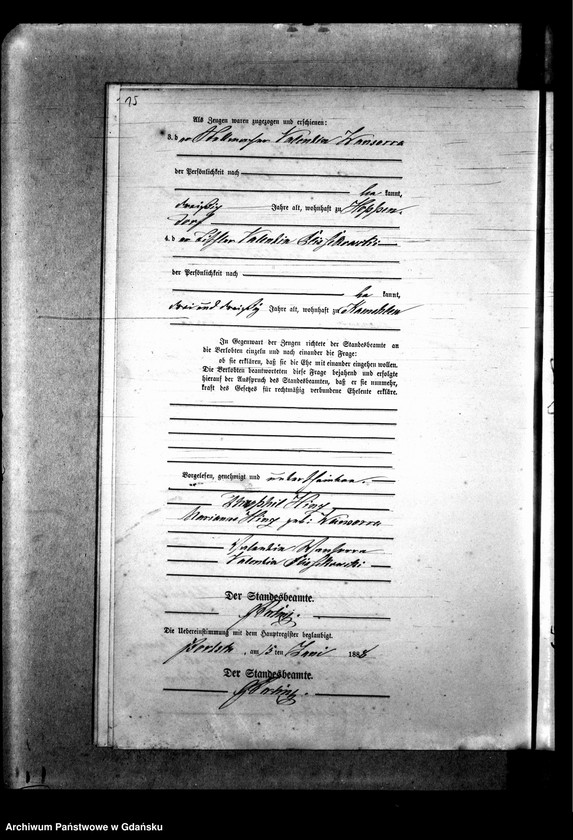 15
Als Zeugen waren zugezogen und erschienen:
3. der Valentin Wansorra
der Persönlichkeit nach
be kannt,
dreißig Jahre alt, wohnhaft zu Hoppen-
dorf
4. der Tischler Valentin
der Persönlichkeit nach
be kannt,
drei und dreißig Jahre alt, wohnhaft zu Kamehlen
In Gegenwart der Zeugen richtete der Standesbeamte an
die Verlobten einzeln und nach einander die Frage:
ob sie erklären, daß sie die Ehe mit einander eingehen wollen.
Die Verlobten beantworteten diese Frage bejahend und erfolgte
hierauf der Ausspruch des Standesbeamten, daß er sie nunmehr,
kraft des Gesetzes für rechtmäßig verbundene Eheleute erkläre.
Vorgelesen, genehmigt und unterschrieben.
Hinz
Marianna Hinz geb: Wansorra
Valentin Wansorra
Valentin
Der Standesbeamte.
Die Uebereinstimmung mit dem Hauptregister beglaubigt.
am 15 ten Juni 188
Der Standesbeamte.
Archiwum Państwowe w Gdańsku